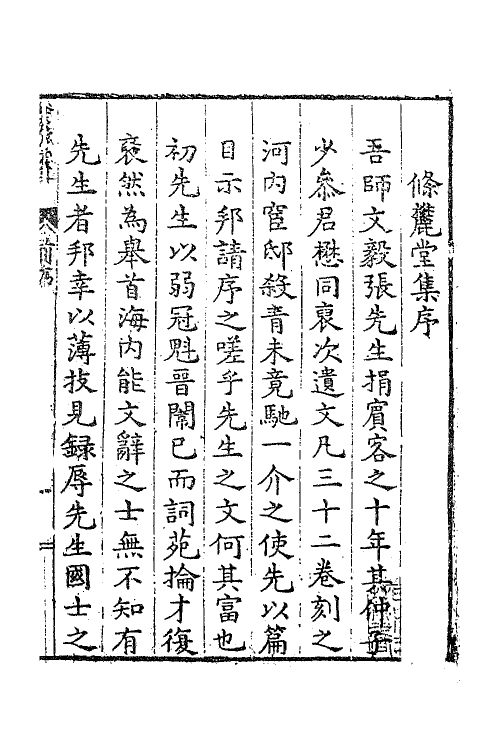 條麓堂集序
吾師文毅張先生捐賓客之十年其仲子
少叅君懋同裒次遺文凡三十二卷刻之
河内宦邸殺青未竟馳一介之使先以篇
目示邦請序之嗟乎先生之文何其富也
初先生以弱冠魁晉闈已而詞苑掄才復
裒然為舉首海内能文辭之士無不知有
先生者邦幸以薄技見録辱先生國士之